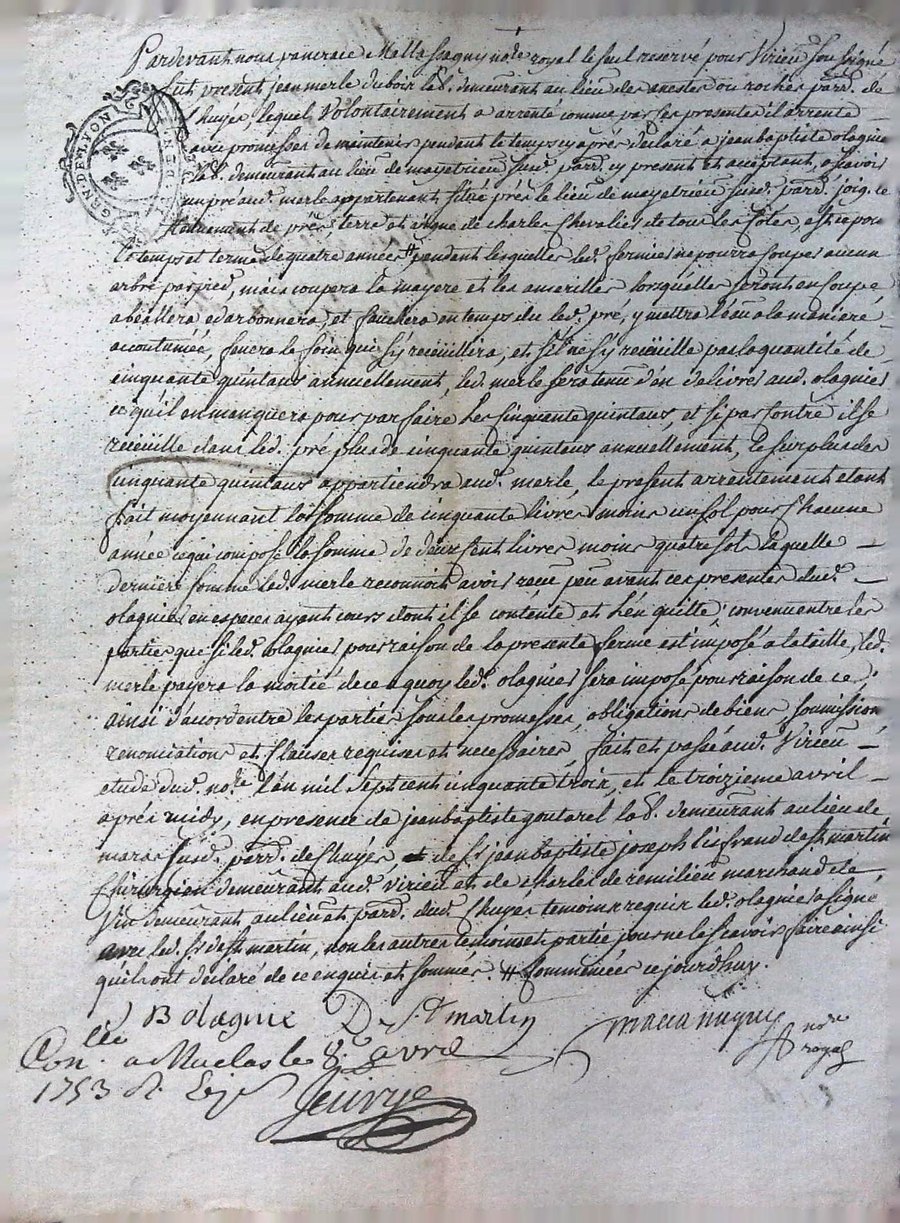 Pardevant nous pancrace Mattassagny no.re royal le seul reservé pour Virieu soussigné
fut present jean merle duboir lab. demeurant au lieu des anestes ou roches par. de
Chuyer, lequel Volontairement a arrenté comme par ces presentes il arrente
avec promesses de maintenir pendant le temps cy aprés declaré a jean baptiste olagnie
lab. demeurant au lieu de mayetrieu susd. par. cy present et acceptant, a sçavoir
un pré aud. merle appartenant situé prés le lieu de mayetrieu susd. par. joig. le
tenement de prés terre et vigne de charles Chevalier de tous les côtés, et ce pour
le temps et terme de quatre année # pendant lesquelles led. fermier ne pourra couper aucun
arbre par pied, mais coupera la mayere et les amarilles lorsquelles seront en coupe
abeallera edarbonnera, et fauchera en temps du led. pré, y mettra l'eau a la maniere
accoutumée, fenera le foin que s'y recüeillira, et s'il ne s'y recüeille pas la quantité de
cinquante quintaux annuellement, led. merle sera tenu d'en delivrer aud. olagnier
ce qu'il en manquera pour parfaire les cinquante quintaux, et si par contre il se
receüille dans led. pré plus de cinquante quintaux annuellement, le surplus des
cinquante quintaux appartiendra aud. merle, le present arrentement etant
fait moyennant la somme de cinquante livres moins un sol pour chacune
année ce qui compose la somme de deux cent livres moins quatre sols laquelle
derniere somme led. merle reconnoit avoir receu peu avant ces presentes dud.
olagnier en especes ayant cours dont il se contente et l'en quitte; convenu entre les
parties que si led. olagnier pour raison de la presente ferme est imposé a la taille, led.
merle payera la moitié de ce a quoy led. olagnier sera imposé pour raison de ce;
ainsi d'accord entre les parties sous les promesses, obligations de biens, soumission
renonciations et clauses requises et necessaires, fait et passé aud. Virieu
etude dud. no.re l'an mil sept cent cinquante trois, et le troizieme avril
aprés midy, en presence de jean baptiste goutarel lab. demeurant au lieu de
maras susd. par. de Chuyer et de Sr jean baptiste joseph liefrand de St martin
Chirurgien demeurant aud. Virieu et de charles de remilieu marchand de
Vin demeurant au lieu et par. dud. Chuyer temoins requis led. olagnier a signé
avec led. Sr de St martin, non les autres temoins et partie pour ne le sçavoir faire ainsi
qu'ils ont declaré de ce enquis et sommés. # Commencées ce jourd'huy.
J B olagnie De St martin
no.re
royal
Con.lé a Maclas le 8. avril
1753
GEN. DE LYON